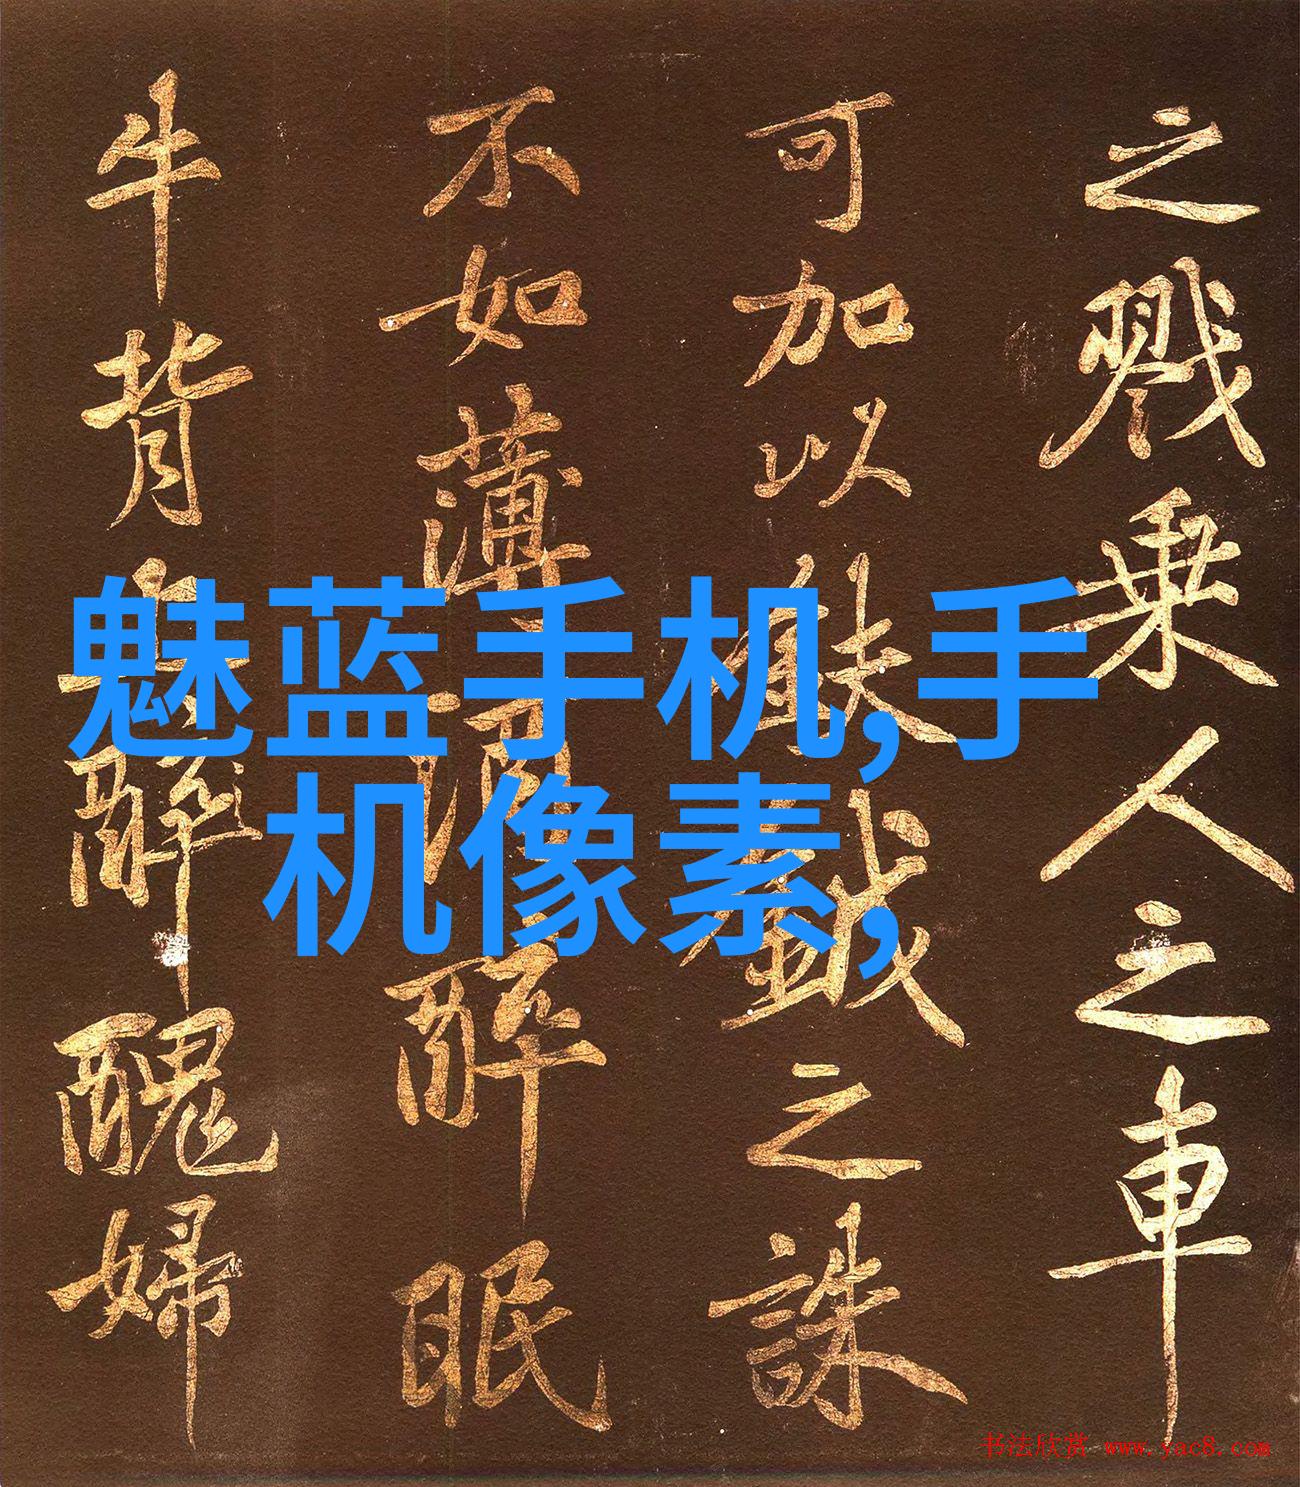 魅蓝手机,手
机像素,
之戮乘人之車
可加以鈇鉞之誅
不如薄酒醉眠
牛背上醉醜婦
书法欣赏 www.yac8.com